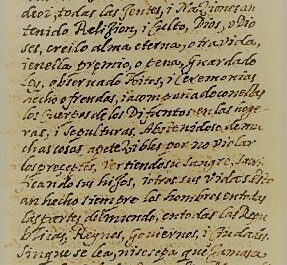 deoz, todas las Gentes, i Naziones an
tenido Religion, i Culto, Dios, o Dio
ses, creido alma eterna, o tra vida,
i en ella premio, o pena, Guardado
Ley, observado Ritos, i Ceremonias
hecho ofrendas, i acompañado con ellas
los Cuerpos de los Difuntos en las ogue
ras, i Sepulturas. Abstenidose de mu
chas cosas apetezibles por no violar
los preceptos, vertiendo su Sangre, Sacri
ficando sus hijos, i otras sus vidas. Esto
an hecho siempre los hombres en todas
las partes del mundo, en todas las Repu
blicas, Reynos, Goviernos, i Ciudades.
Sin que se lea, ni se sepa que jamas a